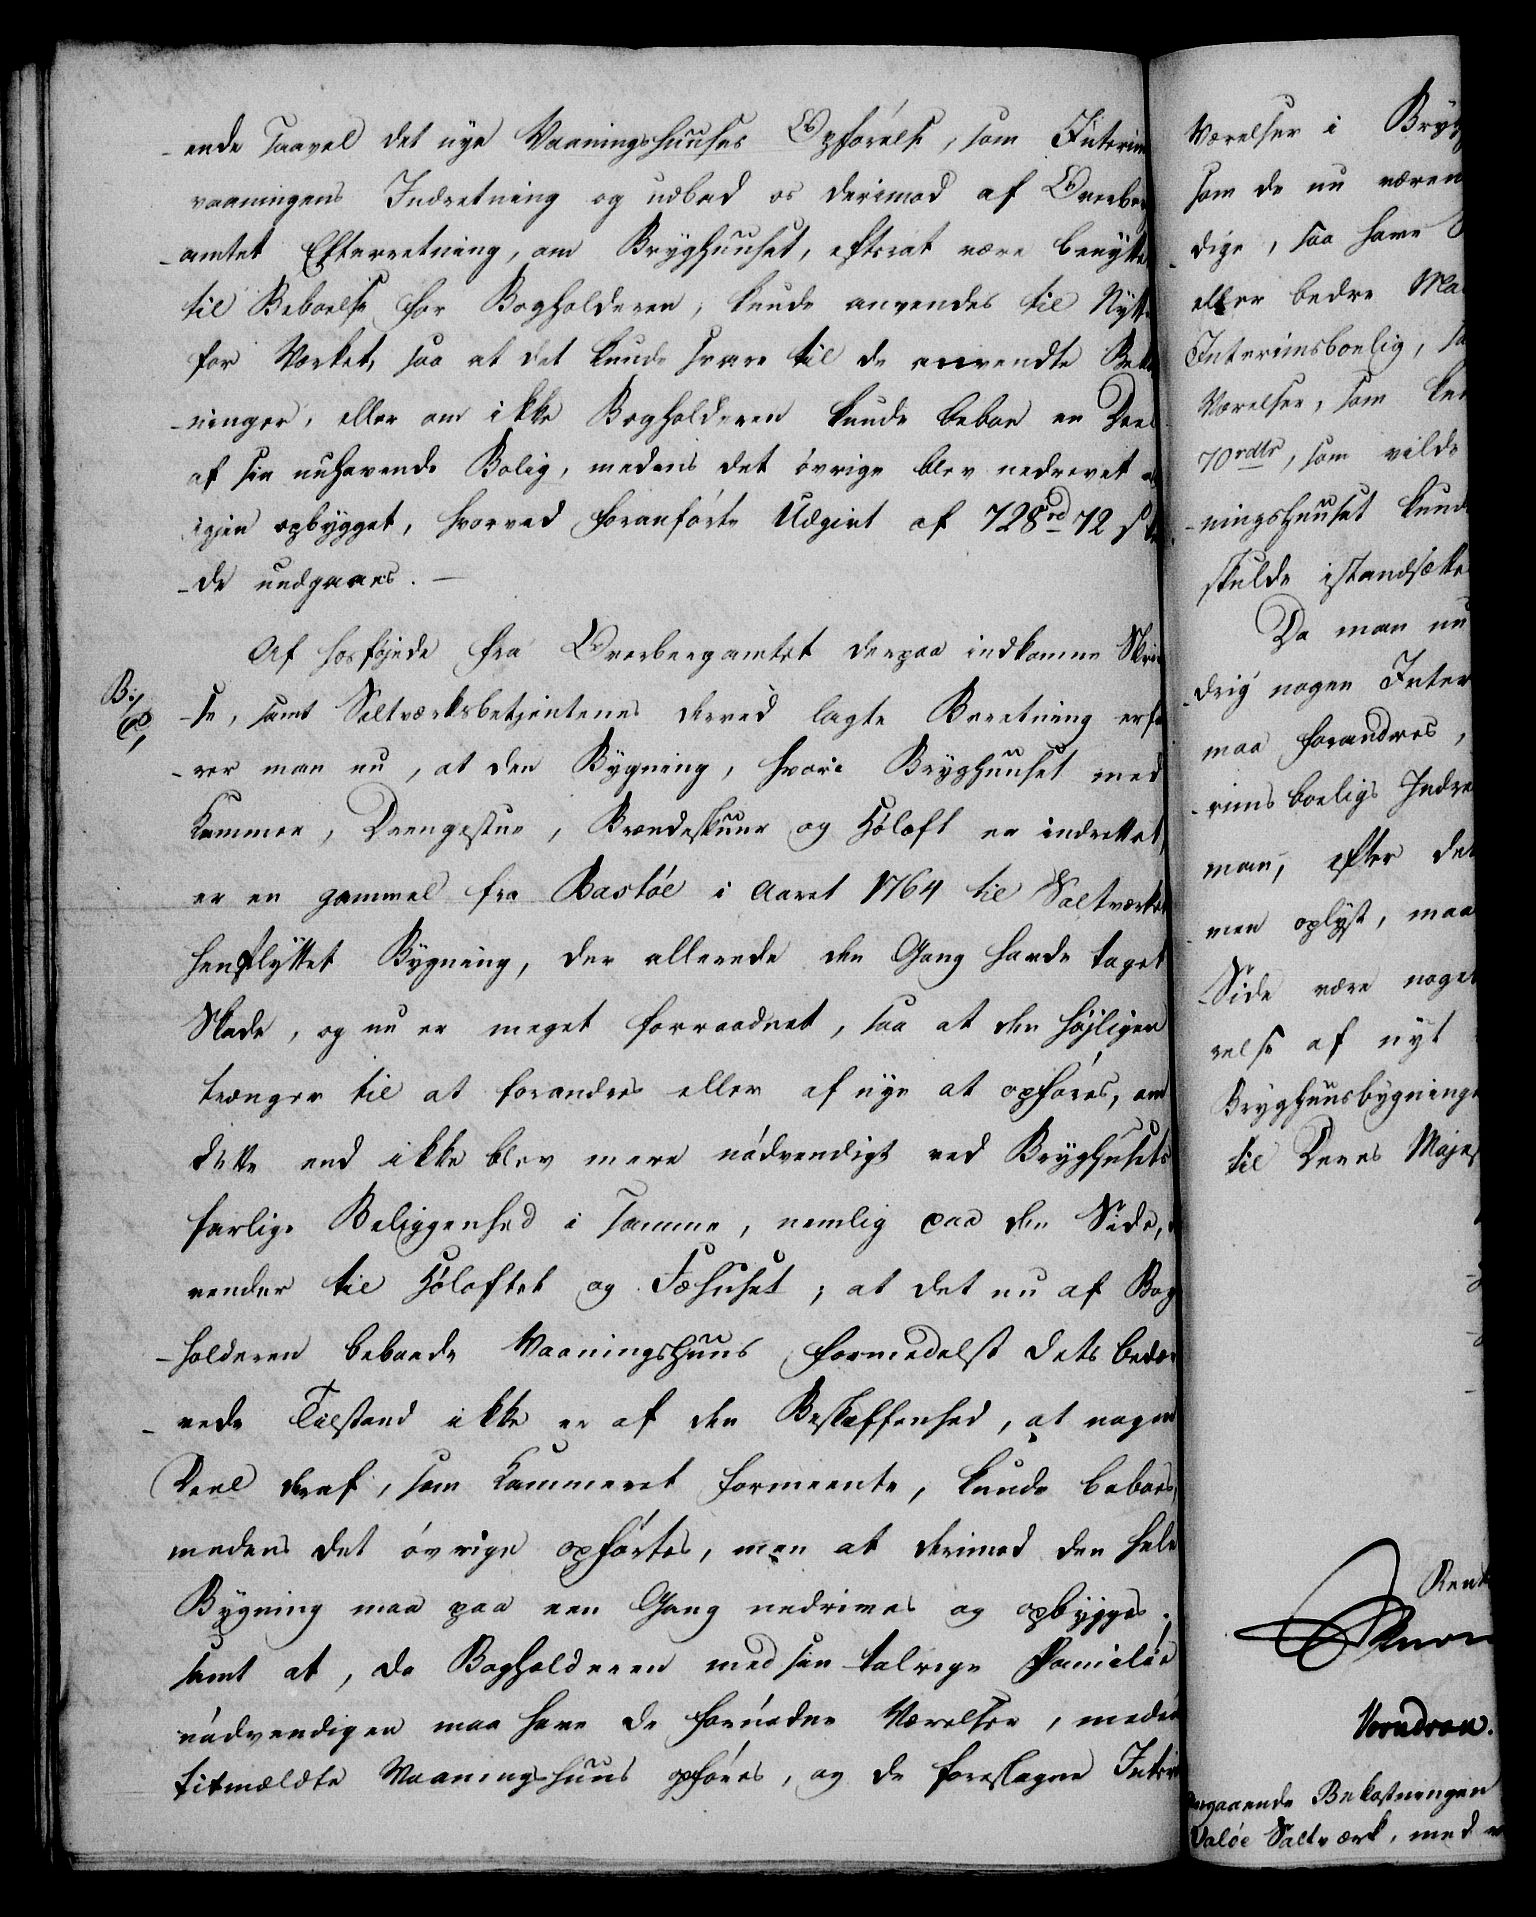 -ende saavel det nye Vaaningshuuses Opförelse, som Interim
vaaningens Indretning og udbad os derimod af Overber
-amtet Efterretning, om Bryghuuset, efterat være benytte
til Beboelse for Bogholderen, kunde anvendes til Nytte
for Værket, saa at det kunde svare til de anvendte Beko
-ninger, eller om ikke Bogholderen kunde beboe en Deel
af sin nuhavende Bolig, medens det övrige blev nedrevet
igien opbygget, hvorved foranförte Udgivt af 728 rd 72 s
-de undgaaes. —
Af hosföjede fra Overbergamtet derpaa indkomne Skri
B:
-se, samt Saltværksbetjentenes derved lagte Beretning erfa
-rer man nu, at den Bygning, hvori Bryghuuset med
Kammer, Drengestue, Brændeskuur og Höloft er indrettet,
er en gammel fra Bastöe i Aaret 1764 til Saltværket
henflyttet Bygning, der allerede den Gang havde taget
Skade, og nu er meget forraadnet, saa at den höjligen
trænger til at forandres eller af nye at opföres, om
dette end ikke blev mere nödvendigt ved Bryghusets
farlige Beliggenhed i samme, nemlig paa den Side,
vender til Höloftet og Fæhuset; at det nu af Bog
-holderen beboede Vaaningshuus formedelst dets bedær
-vede Tilstand ikke er af den Beskaffenhed, at nogen
Deel deraf, som Kammeret formeente, kunde beboes,
medens det övrige opförtes, men at derimod den hele
Bygning maa paa een Gang nedrives og opbygges;
samt at, da Bogholderen med sin talrige Familie
nödvendigen maa have de fornödne Værelser, meden
titmældte Vaaningshuus opföres, og de foreslagne Inter
Værelser i Bryg
som de nu væren
-dige, saa have
eller bedre Ma
Interimsboelig, sa
Værelser, som
70 rdlr, som vilde
-ningshuuset kund
skulde istandsætte
Da man nu
-drig nogen Inter
maa forandres,
-rimsboeligs Indre
man, efter det
men oplyst, maa
Side være noget
-relse af nyt
Bryghuusbygninge
til Deres Majes
Rent
Vorndran.
-gaaende Bekostningen
Valöe Saltværk, med